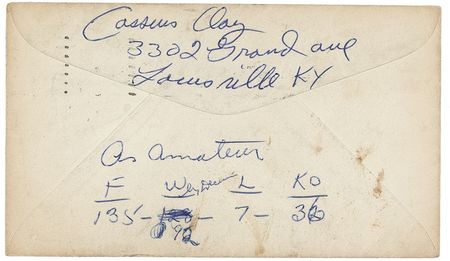 Cassius Clay
3302 Grand ave
Louisville KY
As Amateur
F W L KO
135 - - 7 - 36